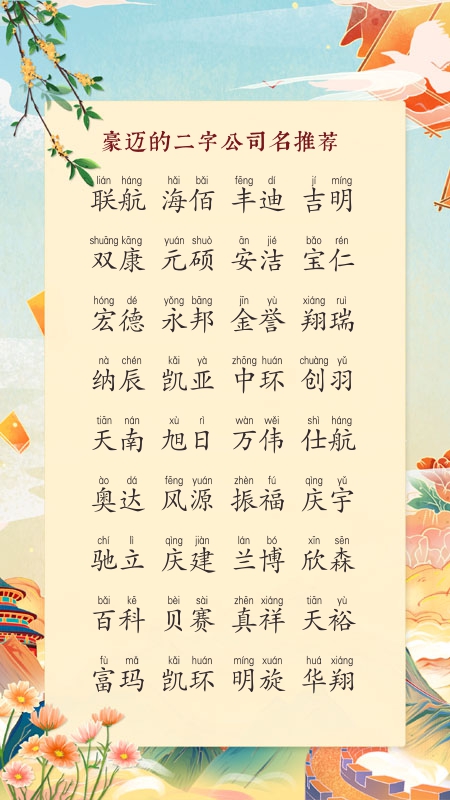 豪迈的二字公司名推荐
lián háng hǎi bǎi fēng dí jí míng
联航 海佰 丰迪 吉明
shuāng kāng yuán shuò ān jié bǎo rén
双康 元硕 安洁 宝仁
hóng dé yǒng bāng jīn yù xiáng ruì
宏德 永邦 金誉 翔瑞
nà chén kǎi yà zhōng huán chuàng yǔ
纳辰 凯亚 中环 创羽
tiān nán xù rì wàn wěi shì háng
天南 旭日 万伟 仕航
ào dá fēng yuán zhèn fú qìng yǔ
奥达 风源 振福 庆宇
chí lì qìng jiàn lán bó xīn sēn
驰立 庆建 兰博 欣森
bǎi kē bèi sài zhēn xiáng tiān yù
百科 贝赛 真祥 天裕
fù mǎ kǎi huán míng xuán huá xiáng
富玛 凯环 明旋 华翔